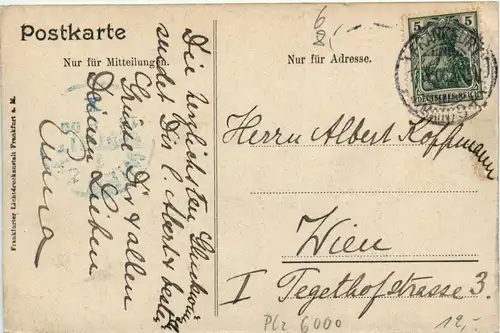 Postkarte
Nur für Mitteilungen.
Nur für Adresse.
Die herzlichsten Glückwün
sendet Dir l. Albert & beste
Grüsse Dir & allen
Deinen Lieben
Anna
Frankfurter Lichtdruckanstalt Frankfurt a. M.
6
8,-
5 5
DEUTSCHES REICH
Herrn Albert Koffmann
Wien
I Tegethofstrasse 3.
Plz 6000
12,-